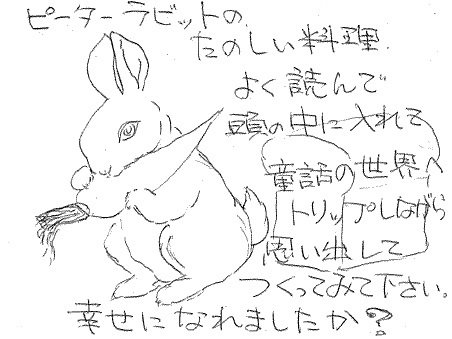 ピーターラビットの
たのしい料理
よく読んで
頭の中に入れて
童話の世界へ
トリップしながら
思い出して
つくってみて下さい。
幸せになれましたか？